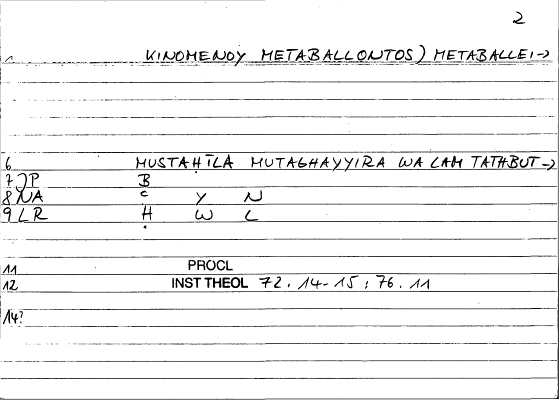 2
1 KINOMENOY METABALLONTOS) METABALLEI→
6 MUSTAḤĪLA MUTAGHAYYIRA WA LAM TATHBUT→
7 JP B
8 NA C Y N
9 LR Ḥ W L
11 PROCL
12 INST THEOL 72.14-15; 76.11
14?